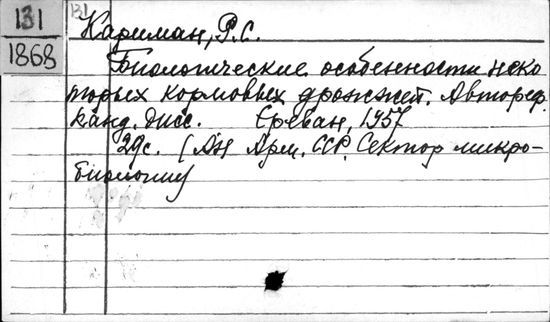 131
1868
131
Кариман, Р.С.
Биологические особенности неко
торых кормовых дрожжей. Автореф.
канд. дисс. Ереван, 1957
29с. (АН Арм. ССР. Сектор микро-
биологии)